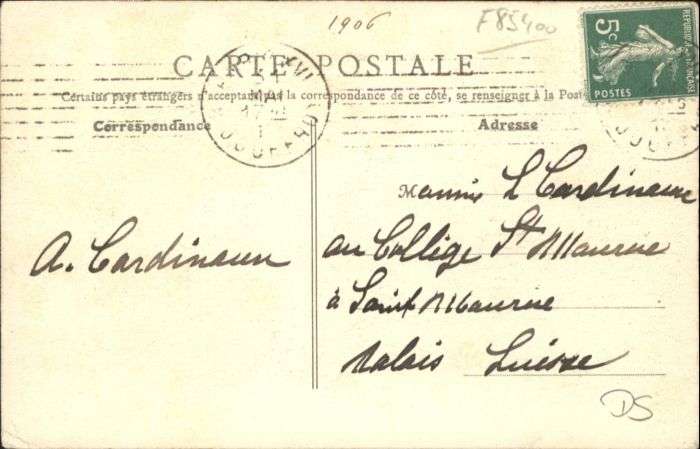 1906
F85400
5c
POSTES
CARTE POSTALE
Certains pays étrangers n'acceptant pas la correspondance de ce côté, se renseigner à la Poste
Correspondance
Adresse
L Cardinaux
au Collège St Maurice
A. Cardinaux
à Saint Maurice
Valais Suisse
DS